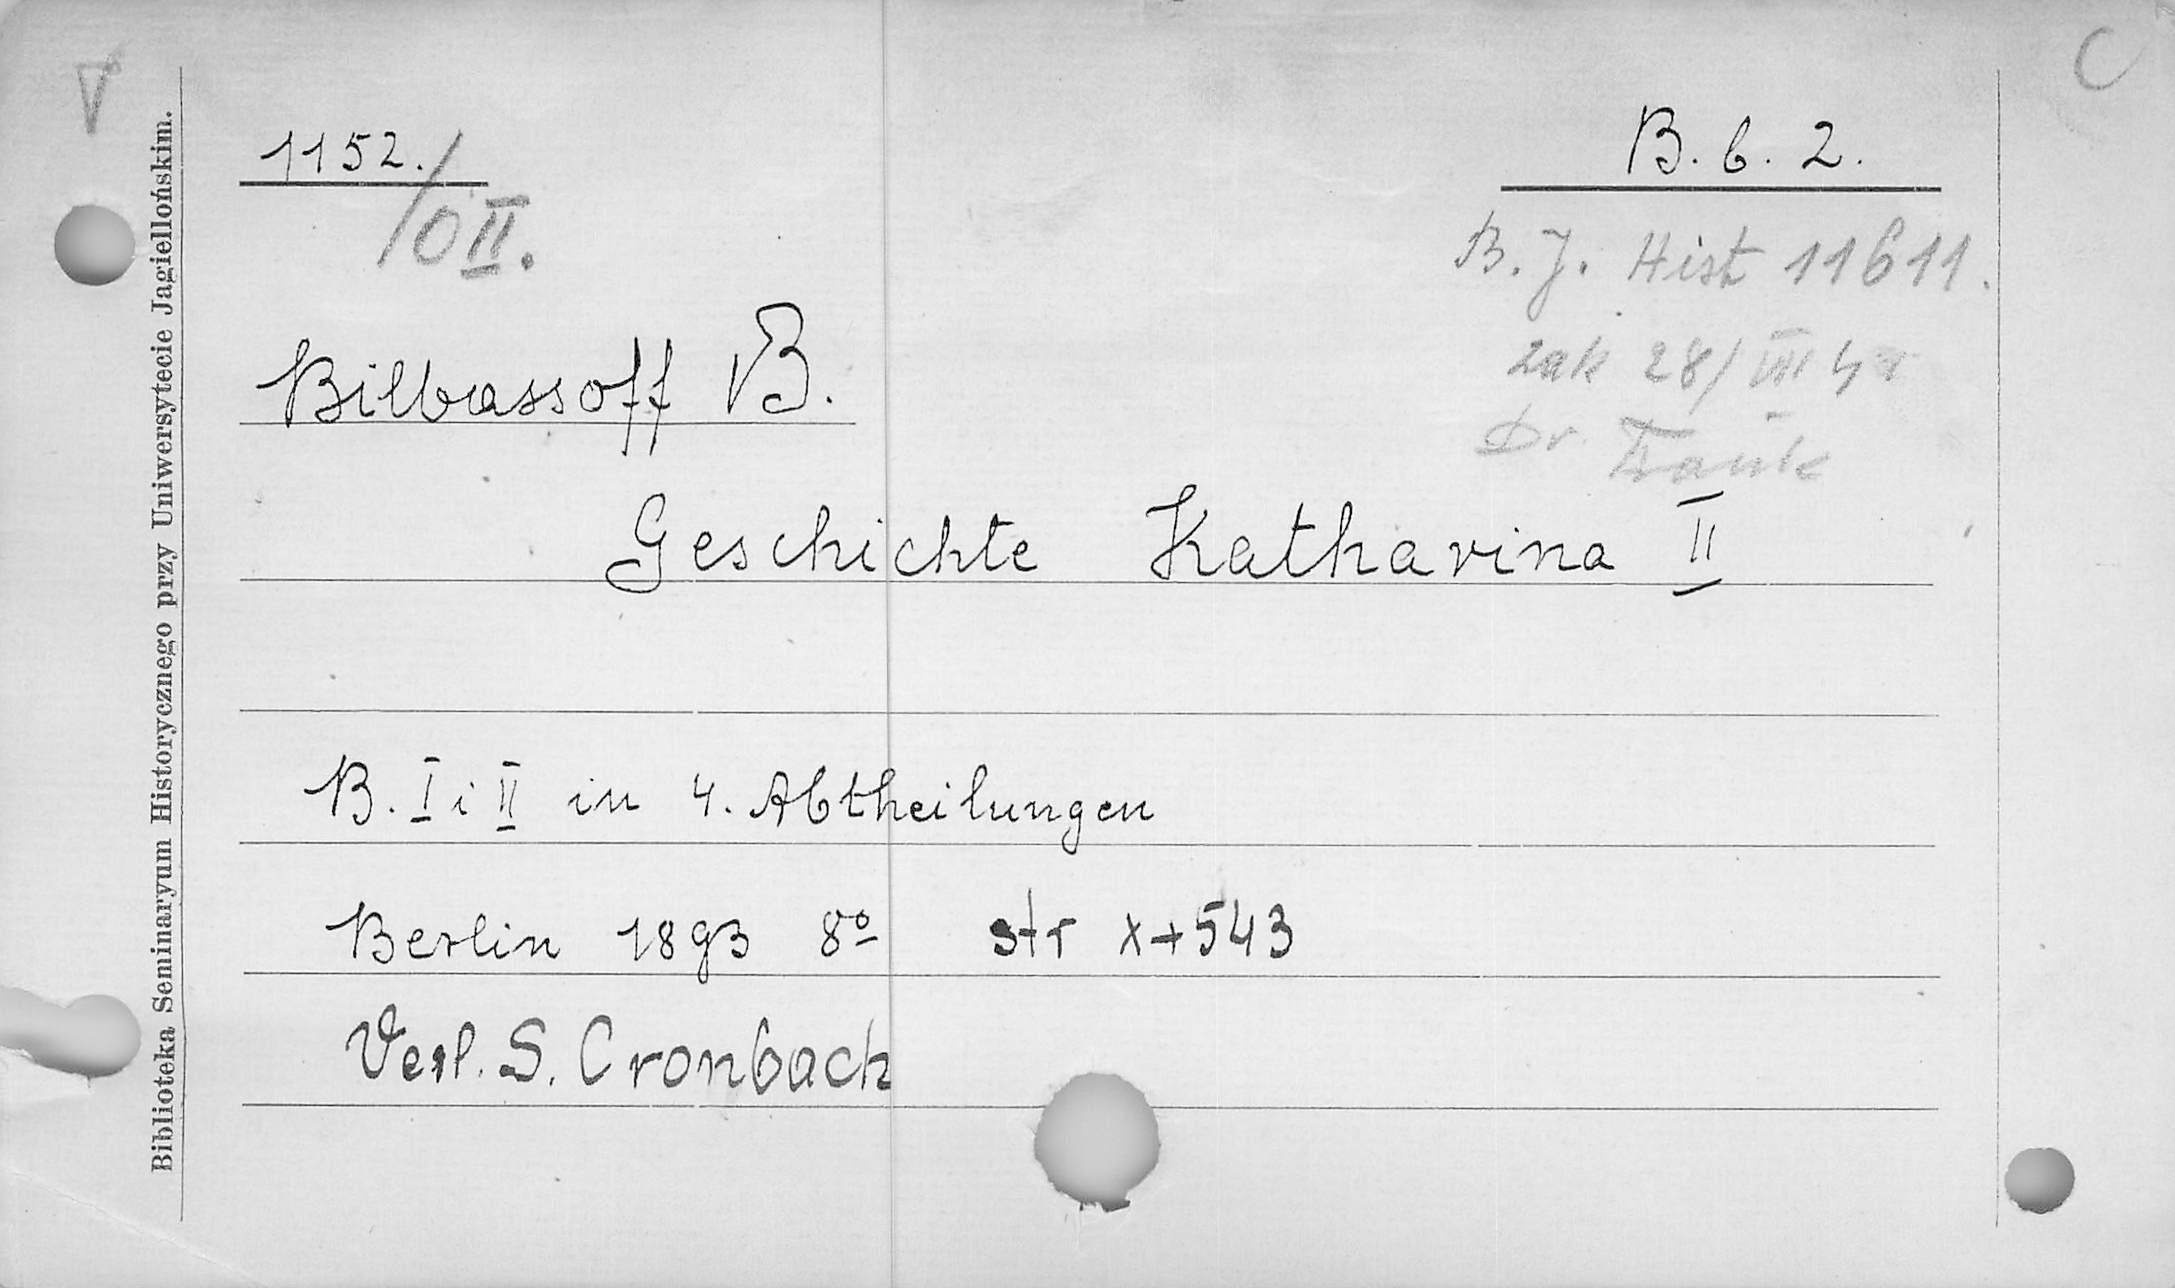 V
C
1152./OII.
B. b. 2.
B. J. Hist 11611.
zak 28/VIII 41
Dr.
Bilbassoff B.
Geschichte Katharina II
B. I i II in 4. Abtheilungen
Berlin 1893 8º str x+543
Verl. S. Cronbach
Biblioteka Seminaryum Historycznego przy Uniwersytecie Jagiellońskim.